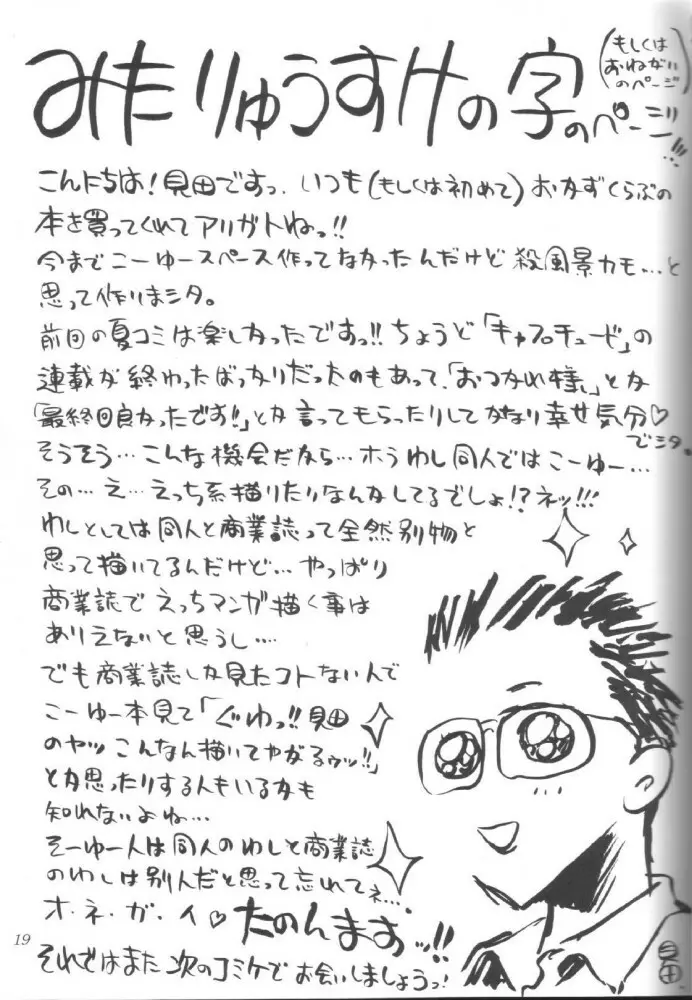 みたりゅうすけの字のページ!!!
(もしくは
おねがい
のページ)
こんにちは!見田ですっ。いつも(もしくは初めて)おかずくらぶの
本を買ってくれてアリガトねっ!!
今までこーゆースペース作ってなかったんだけど殺風景カモ…と
思って作りまシタ。
前回の夏コミは楽しかったですっ!!ちょうど「キャプロチュード」の
連載が終わったばっかりだったのもあって、「おつかれ様」とか
「最終回良かったです!」とか言ってもらったりしてかなり幸せ気分♡
でシタ。
そうそう…こんな機会だから…ホラわし同人ではこーゆー…
その…え…えっち系描いたりなんかしてるでしょ!?ネッ!!!
わしとしては同人と商業誌って全然別物と
思って描いてるんだけど…やっぱり
商業誌でえっちマンガ描く事は
ありえないと思うし…
でも商業誌しか見たコトない人で
こーゆー本見て「ぐわっ!!見田
のヤツこんなん描いてやがるゥッ!!」
とか思ったりする人もいるかも
知れないよね…
そーゆー人は同人のわしと商業誌
のわしは別人だと思って忘れてネ…
オ・ネ・ガ・イ♡たのんますっ…!!
それではまた次のコミケでお会いしましょうっ!
見田
19